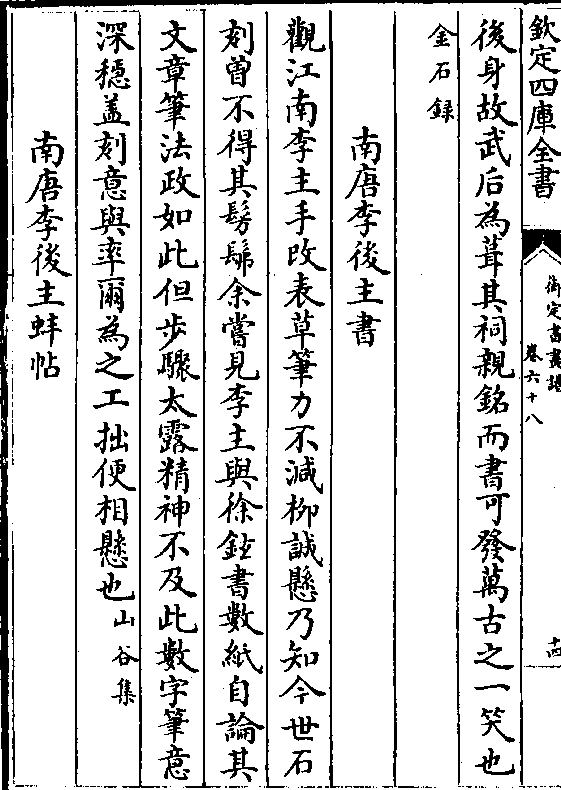 欽定四庫全書
御定書畫譜
卷六十八
十四
後身故武后為葺其祠親銘而書可發萬古之一笑也
金石録
南唐李後主書
觀江南李主手改表草筆力不減柳誠懸乃知今世石
刻曽不得其髣髴余嘗見李主與徐鉉書數紙自論其
文章筆法政如此但歩驟太露精神不及此數字筆意
深穏盖刻意與率爾為之工拙便相懸也山谷集
南唐李後主蚌帖